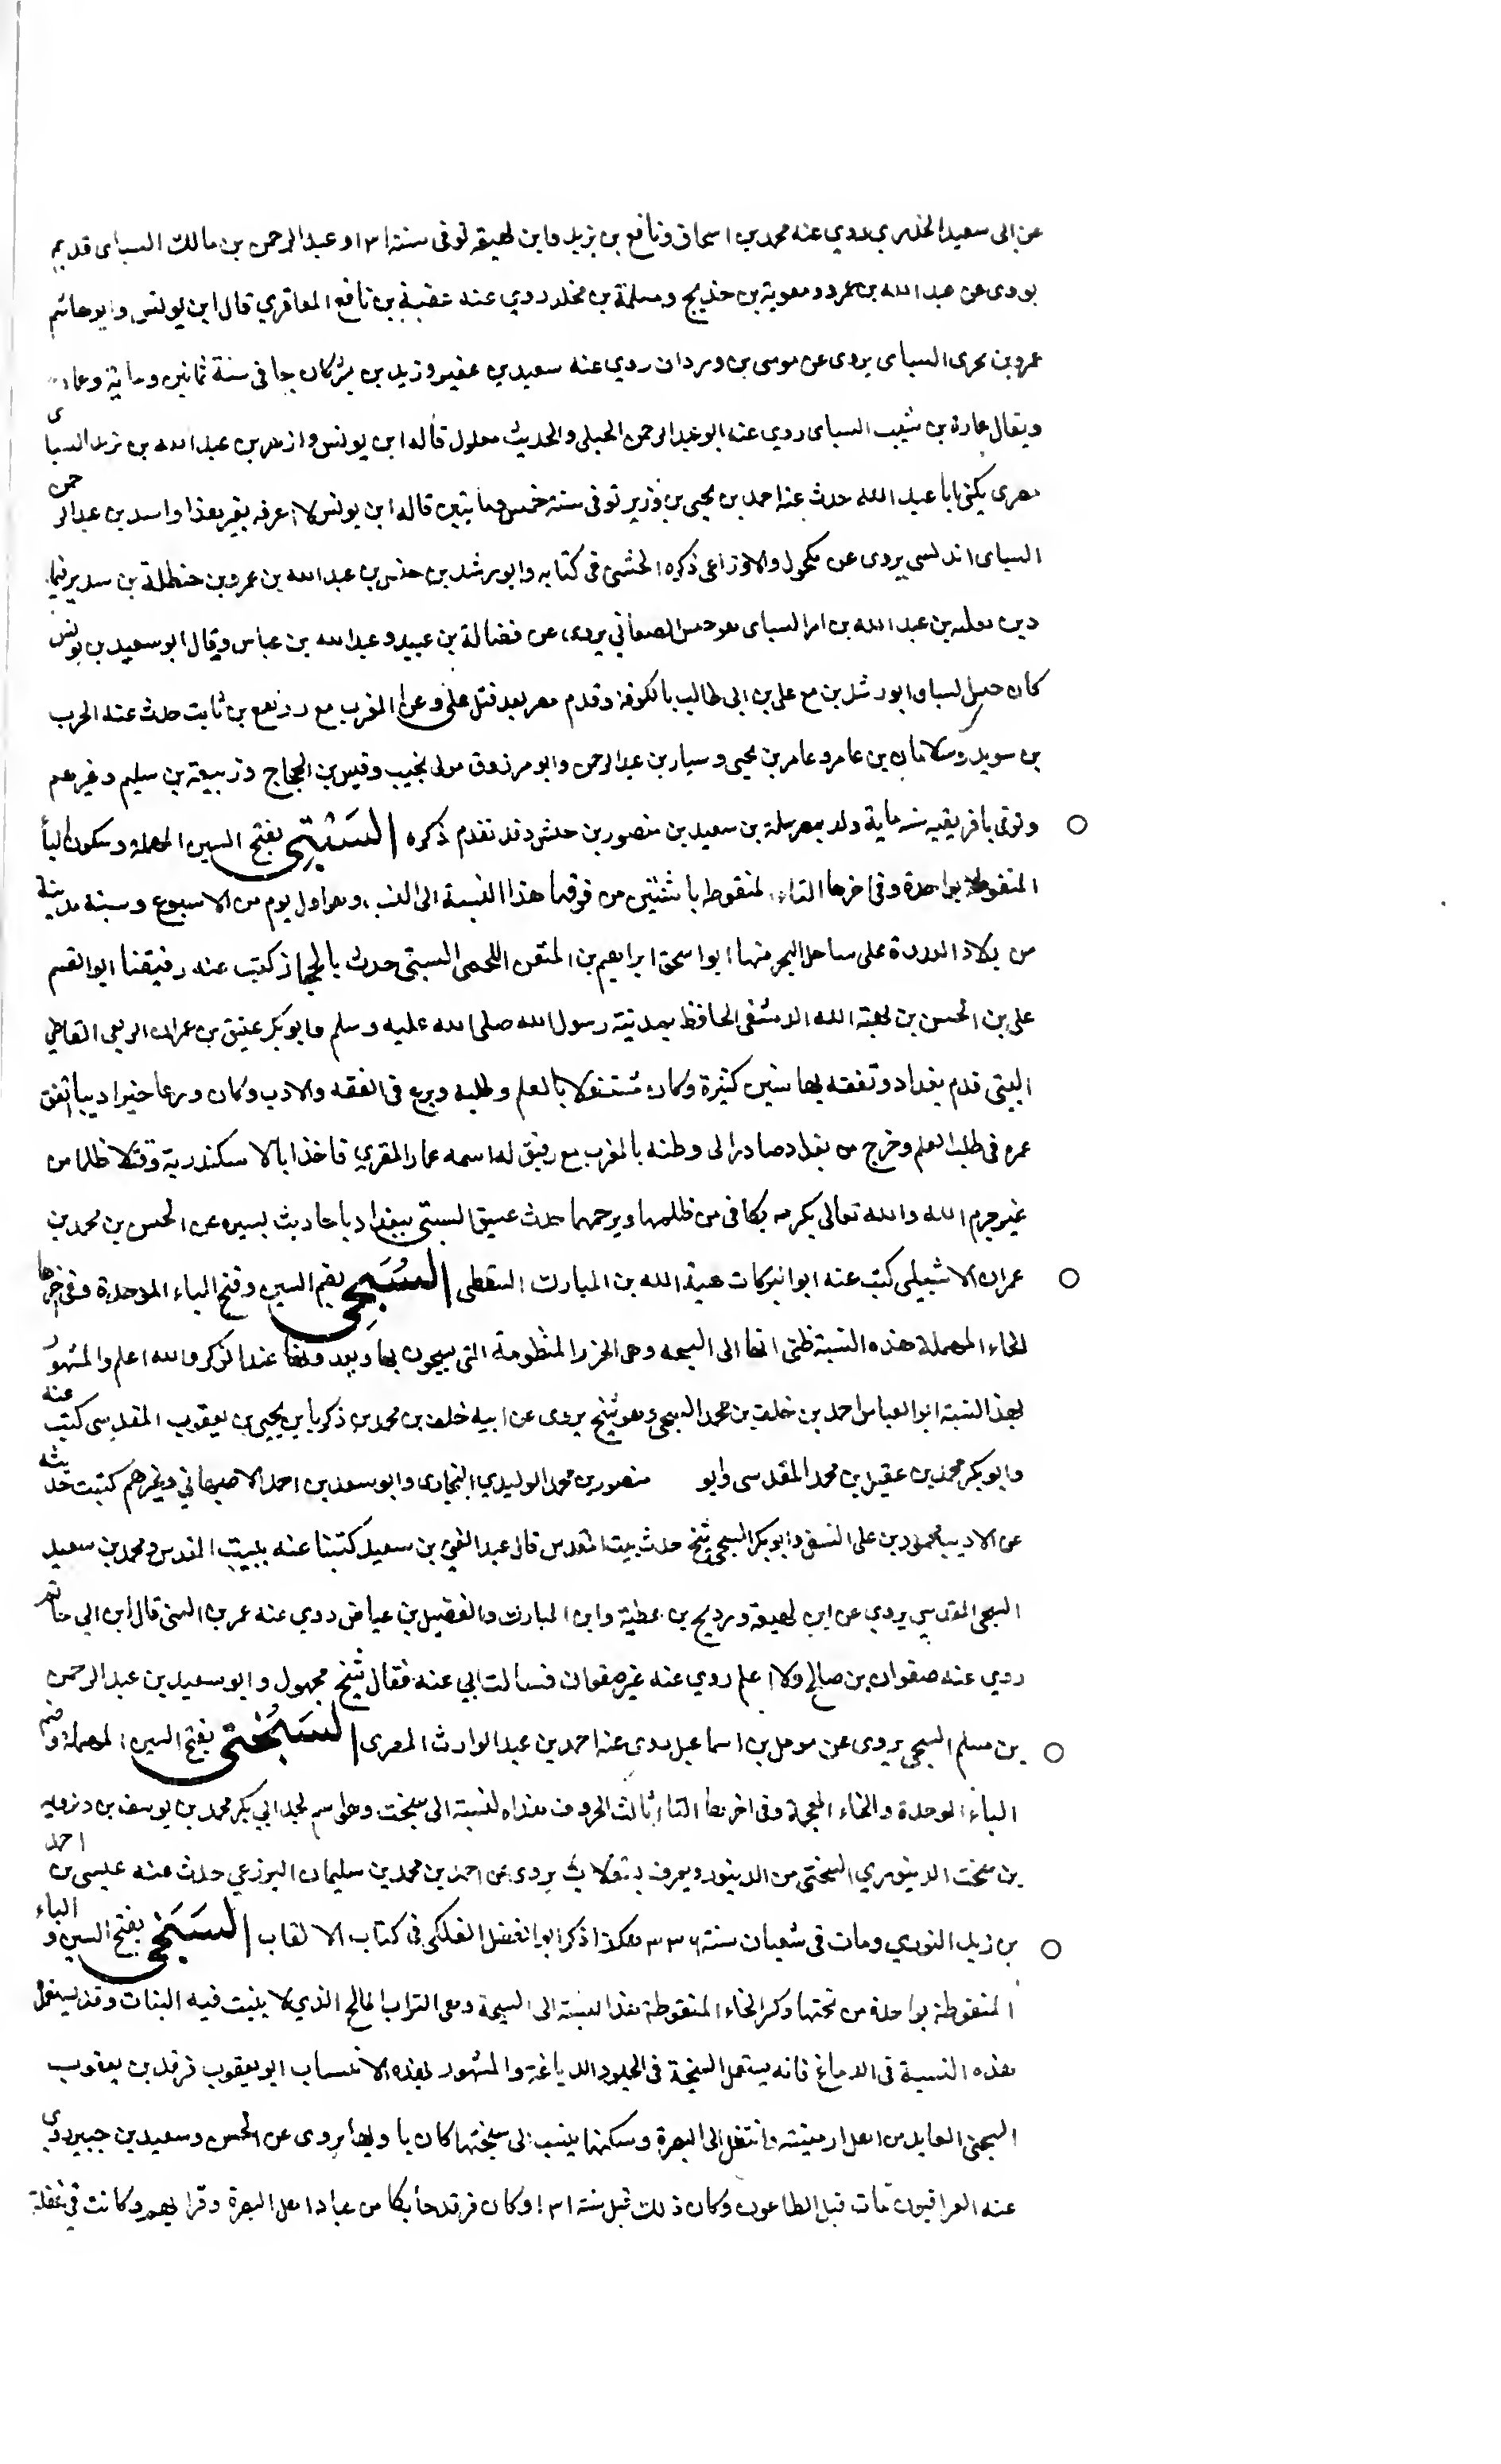 عن ابى سعيد الخدري روي عنه محمد بن اسحاق ونافع بن يزيد وابن لهيعة توفى سنة ١٣١ وعبد الرحمن بن مالك السباى قديم
يروى عن عبد الله بن عمرو ومعوية بن خديج ومسلمة بن مخلد روي عنه عقبة بن نافع المعافري قال ابن يونس وابو حاتم
عمرو بن بحرى السباى يروى عن موسى بن وردان روي عنه سعيد بن عفير وزيد بن بشر كان حيا فى سنة ثمانين وماية وعمارة
ويقال عمارة بن شبيب السباى روي عنه ابو عبد الرحمن الحبلى والحديث معلول قاله ابن يونس وازهر بن عبد الله بن يزيد السباى
مصرى يكنى ابا عبد الله حدث عنه احمد بن يحيى بن وزير توفى سنة خمس ومايتين قاله ابن يونس لا اعرفه بغير هذا واسد بن عبد الرحمن
السباى اندلسى يروى عن مكحول والاوزاعى ذكره الخشنى فى كتابه وابو رشدين حنش بن عبد الله بن عمرو بن حنظلة بن
بن عبد الله بن السباى هو حنش الصنعاني يروى عن فضالة بن عبيد وعبد الله بن عباس وقال ابو سعيد بن يونس
كان حنش السباى ابو رشدين مع على بن ابى طالب بالكوفة وقدم مصر بعد قتل على وغزا المغرب مع رويفع بن ثابت حدث عنه الحرث
بن سويد وسلامان بن عامر وعامر بن يحيى وسيار بن عبد الرحمن وابو مرزوق مولى تجيب وقيس بن الحجاج وربيعة بن سليم وغيرهم
وتوفى بافريقيه سنه ماية ولد بمصر سلمة بن سعيد بن منصور بن حنش وقد تقدم ذكره السَبْتِى بفتح السين المهملة وسكون الباء
المنقوطة بواحدة وفى اخرها التاء المنقوطه باثنتين من فوقها هذا النسبة الى السبت وهو اول يوم من الاسبوع وسبتة مدينة
من بلاد العدوة على ساحل البحر منها ابو اسحق ابراهيم بن المتقن اللخمى السبتى حدث بالحجاز كتب عنه رفيقنا ابو القسم
على بن الحسن بن هبة الله الدمشقى الحافظ بمدينة رسول الله صلى الله عليه وسلم وابو بكر عتيق بن عمران الربعى القاضي
السبتى قدم بغداد وتفقه بها سنين كثيرة وكان مشتغلا بالعلم وطلبه وبرع فى الفقه والادب وكان ورعا خيرا ديبا انفق
عمره فى طلب العلم وخرج من بغداد صادرا الى وطنه بالمغرب مع رفيق له اسمه عمار المقري فاخذا بالاسكندرية وقتلا ظلما من
غير جرم الله والله تعالى بكرمه يكافى من ظلمهما ويرحمهما حدث عتيق السبتى ببغداد باحاديث يسيره عن الحسن بن محمد بن
عمران الاشبيلى كتب عنه ابو البركات هبة الله بن المبارك السقطى السُبَحِى بضم السين وفتح الباء الموحدة وفى اخرها
الحاء المهملة هذه النسبة ظنى انها الى السبحه وهى الخرز المنظومة التى يسبحون بها ويعدونها عند الذكر والله اعلم والمشهور
بهذ النسبة ابو العباس احمد بن خلف بن محمد السبحى وهو شيخ يروى عن ابيه خلف بن محمد بن زكريا بن يحيى بن يعقوب المقدسى كتب عنه
وابو بكر محمد بن عقيل بن محمد المقدسى وابو منصور بن محمد الوليدي البخارى وابو سعد بن احمد الاصبهاني وغيرهم كتبت حديثه
عن الاديب محمود بن على النسفى وابو بكر السبحى شيخ حدث ببيت المقدس قال عبد الغني بن سعيد كتبنا عنه ببيت المقدس ومحمد بن سعيد
السبحى المقدسي يروي عن ابن لهيعة ورديح بن عطية وابن المبارك والفضيل بن عياض روي عنه عمر بن السنى قال ابن ابي حاتم
روي عنه صفوان بن صالح ولا اعلم روي عنه غير صفوان فسالت ابي عنه فقال شيخ مجهول وابو سعيد بن عبد الرحمن
بن مسلم السبحى يروى عن مومل بن اسماعيل روى عنه احمد بن عبد الوارث المصرى السَبُخْتى بفتح السين المهملة وضم
الباء الموحدة والخاء المعجمة وفى اخرها التاء ثالث الحروف هذه النسبة الى سبخت وهو اسم لجد ابي بكر محمد بن يوسف بن
بن سبخت الدينوري السبختى من الدينور ويعرف يروى عن احمد بن محمد بن سليمان البرزعي حدث عنه عيسى بن احمد
بن زيد الدينوري ومات فى شعبان سنة ٣٣٦ هكذا ذكر ابو الفضل الفلكى فى كتاب الالقاب السَبَخِى بفتح السين والباء
المنقوطة بواحدة من تحتها وكسر الخاء المنقوطة هذا النسبة الى السبخة وهى التراب المالح الذي لا ينبت فيه النبات وقد يستعمل
هذه النسبة فى الدباغ فانه يستعمل السبخة فى الجلود الدباغة والمشهور بهذه الانتساب ابو يعقوب فرقد بن يعقوب
السبخى العابد من اهل ارمينيه وانتقل الى البصرة وسكنها ينسب الى سبختها كان ياويها يروى عن الحسن وسعيد بن جبير روى
عنه العراقيون مات قبل الطاعون وكان ذلك قبل سنة ١٣١ وكان فرقد حايكا من عباد اهل البصرة وقرايهم وكانت فيه غفلة